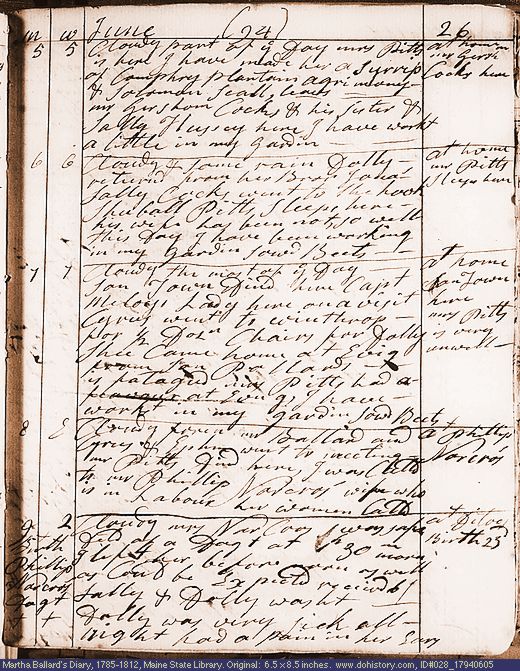 m w June (94) 26
5 5 Clowdy part of ye Day mrs Pitts at home mr Gersh
is here I have made her a Syrrip Cocks here
of Comphry Plantain agrimony
& Solomon Seall leavs
mr Gershom Cocks & his sister &
Sally Hussey here I have workt
a little in my Gardin
6 6 Clowdy & some rain Dolly at home
returnd from her Bror Jonas mrs Pitts
Sally Cocks went to the hook Sleeps here
Shuball Pitts Sleeps here
his wife has been not so well
this Day I have been working
in my Gardin sowd Beets
7 7 Clowdy the most of ye Day at home
Jon Town Dind here Capt Jon Town
Meloys Lady here on a visit here
Cyrus went to winthrop mrs Pitts
for ½ Dosn Chairs for Dolly is very
Shee Came home at Evng unwell
from Ballards
is fataged mrs Pitts had a
at Evng I have
workt in my gardin sowd Beets
8 8 Clowdy mr Ballard and a Phillip
Cyrus & Ephm went to meeting Norcros
mr Pitts Dind here I was Calld
to mr Phillip Norcros wife who
is in Labour her women Calld
9 2 Clowdy mrs Norcros was safe at Ditoes
Birth Dld of a Dagt at 5h 30m morn Birth 23
Phillip
Norcros as Could be Expected receivd 6/
Dagt Sally & Dolly washt
+ + Dolly was very sick all
night had a pain in her
Martha Ballard's Diary, 1785-1812, Maine State Library. Original: 6.5 x 8.5 inches. www.dohistory.com, ID#028_17940605